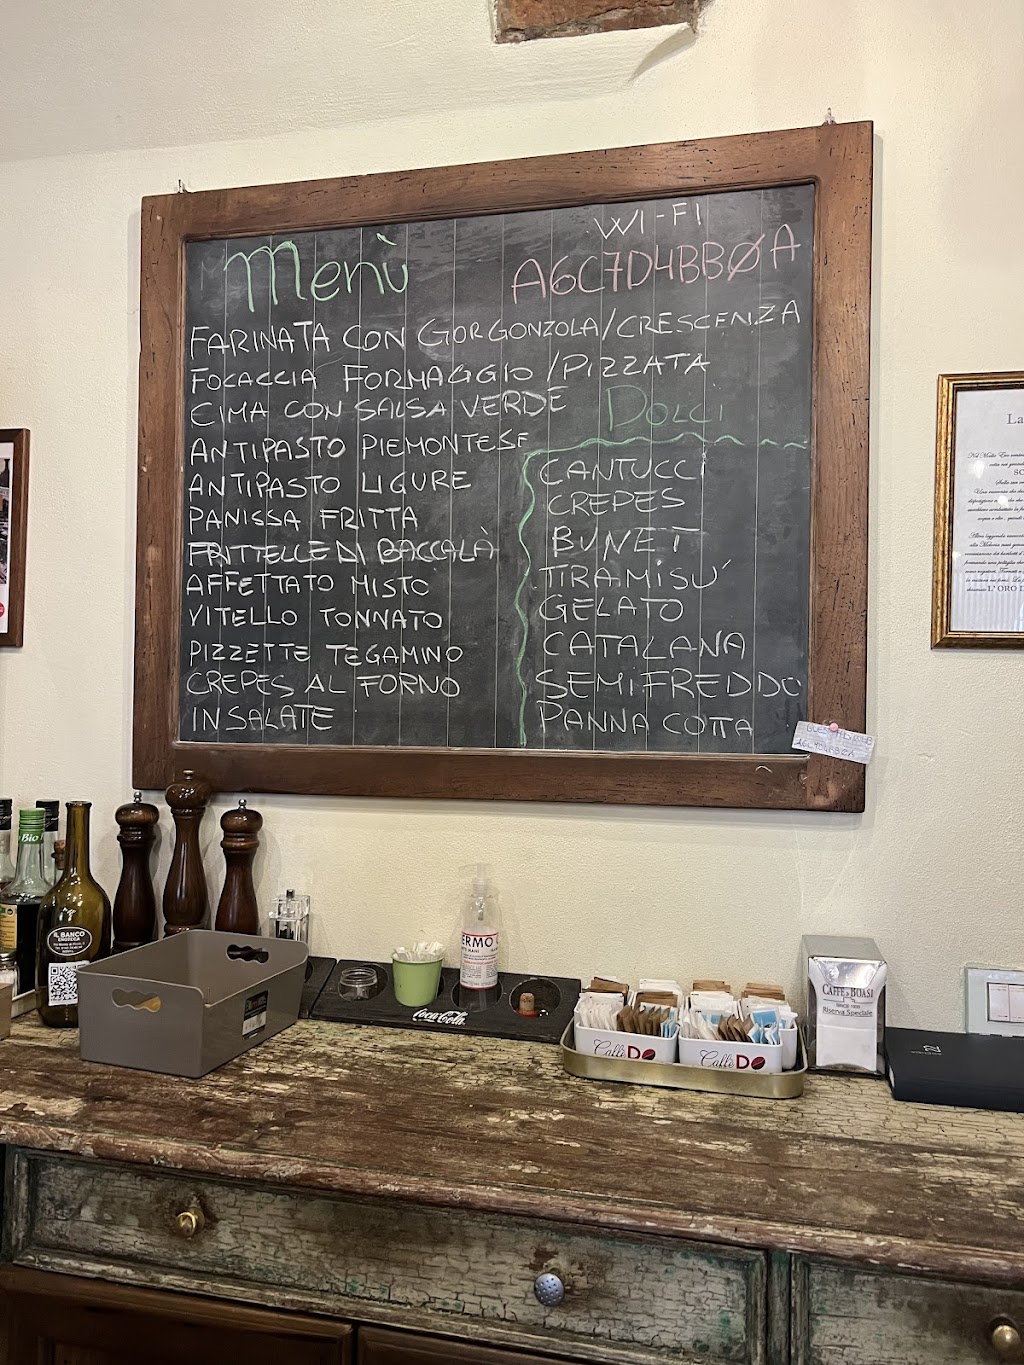 Menù
WI-FI
A6C7D4BBØA
FARINATA CON GORGONZOLA/CRESCENZA
FOCACCIA FORMAGGIO/PIZZATA
CIMA CON SALSA VERDE
ANTIPASTO PIEMONTESE
ANTIPASTO LIGURE
PANISSA FRITTA
FRITTELLE DI BACCALÀ
AFFETTATO MISTO
VITELLO TONNATO
PIZZETTE TEGAMINO
CREPES AL FORNO
INSALATE
DOLCI
CANTUCCI
CREPES
BUNET
TIRAMISU'
GELATO
CATALANA
SEMIFREDDO
PANNA COTTA
La
L'ORO
Bio
IL BANCO
ENOTECA
Coca-Cola
ERMO
Caffè DO
Caffè DO
CAFFÈ BOASI
SINCE 1930
Riserva Speciale